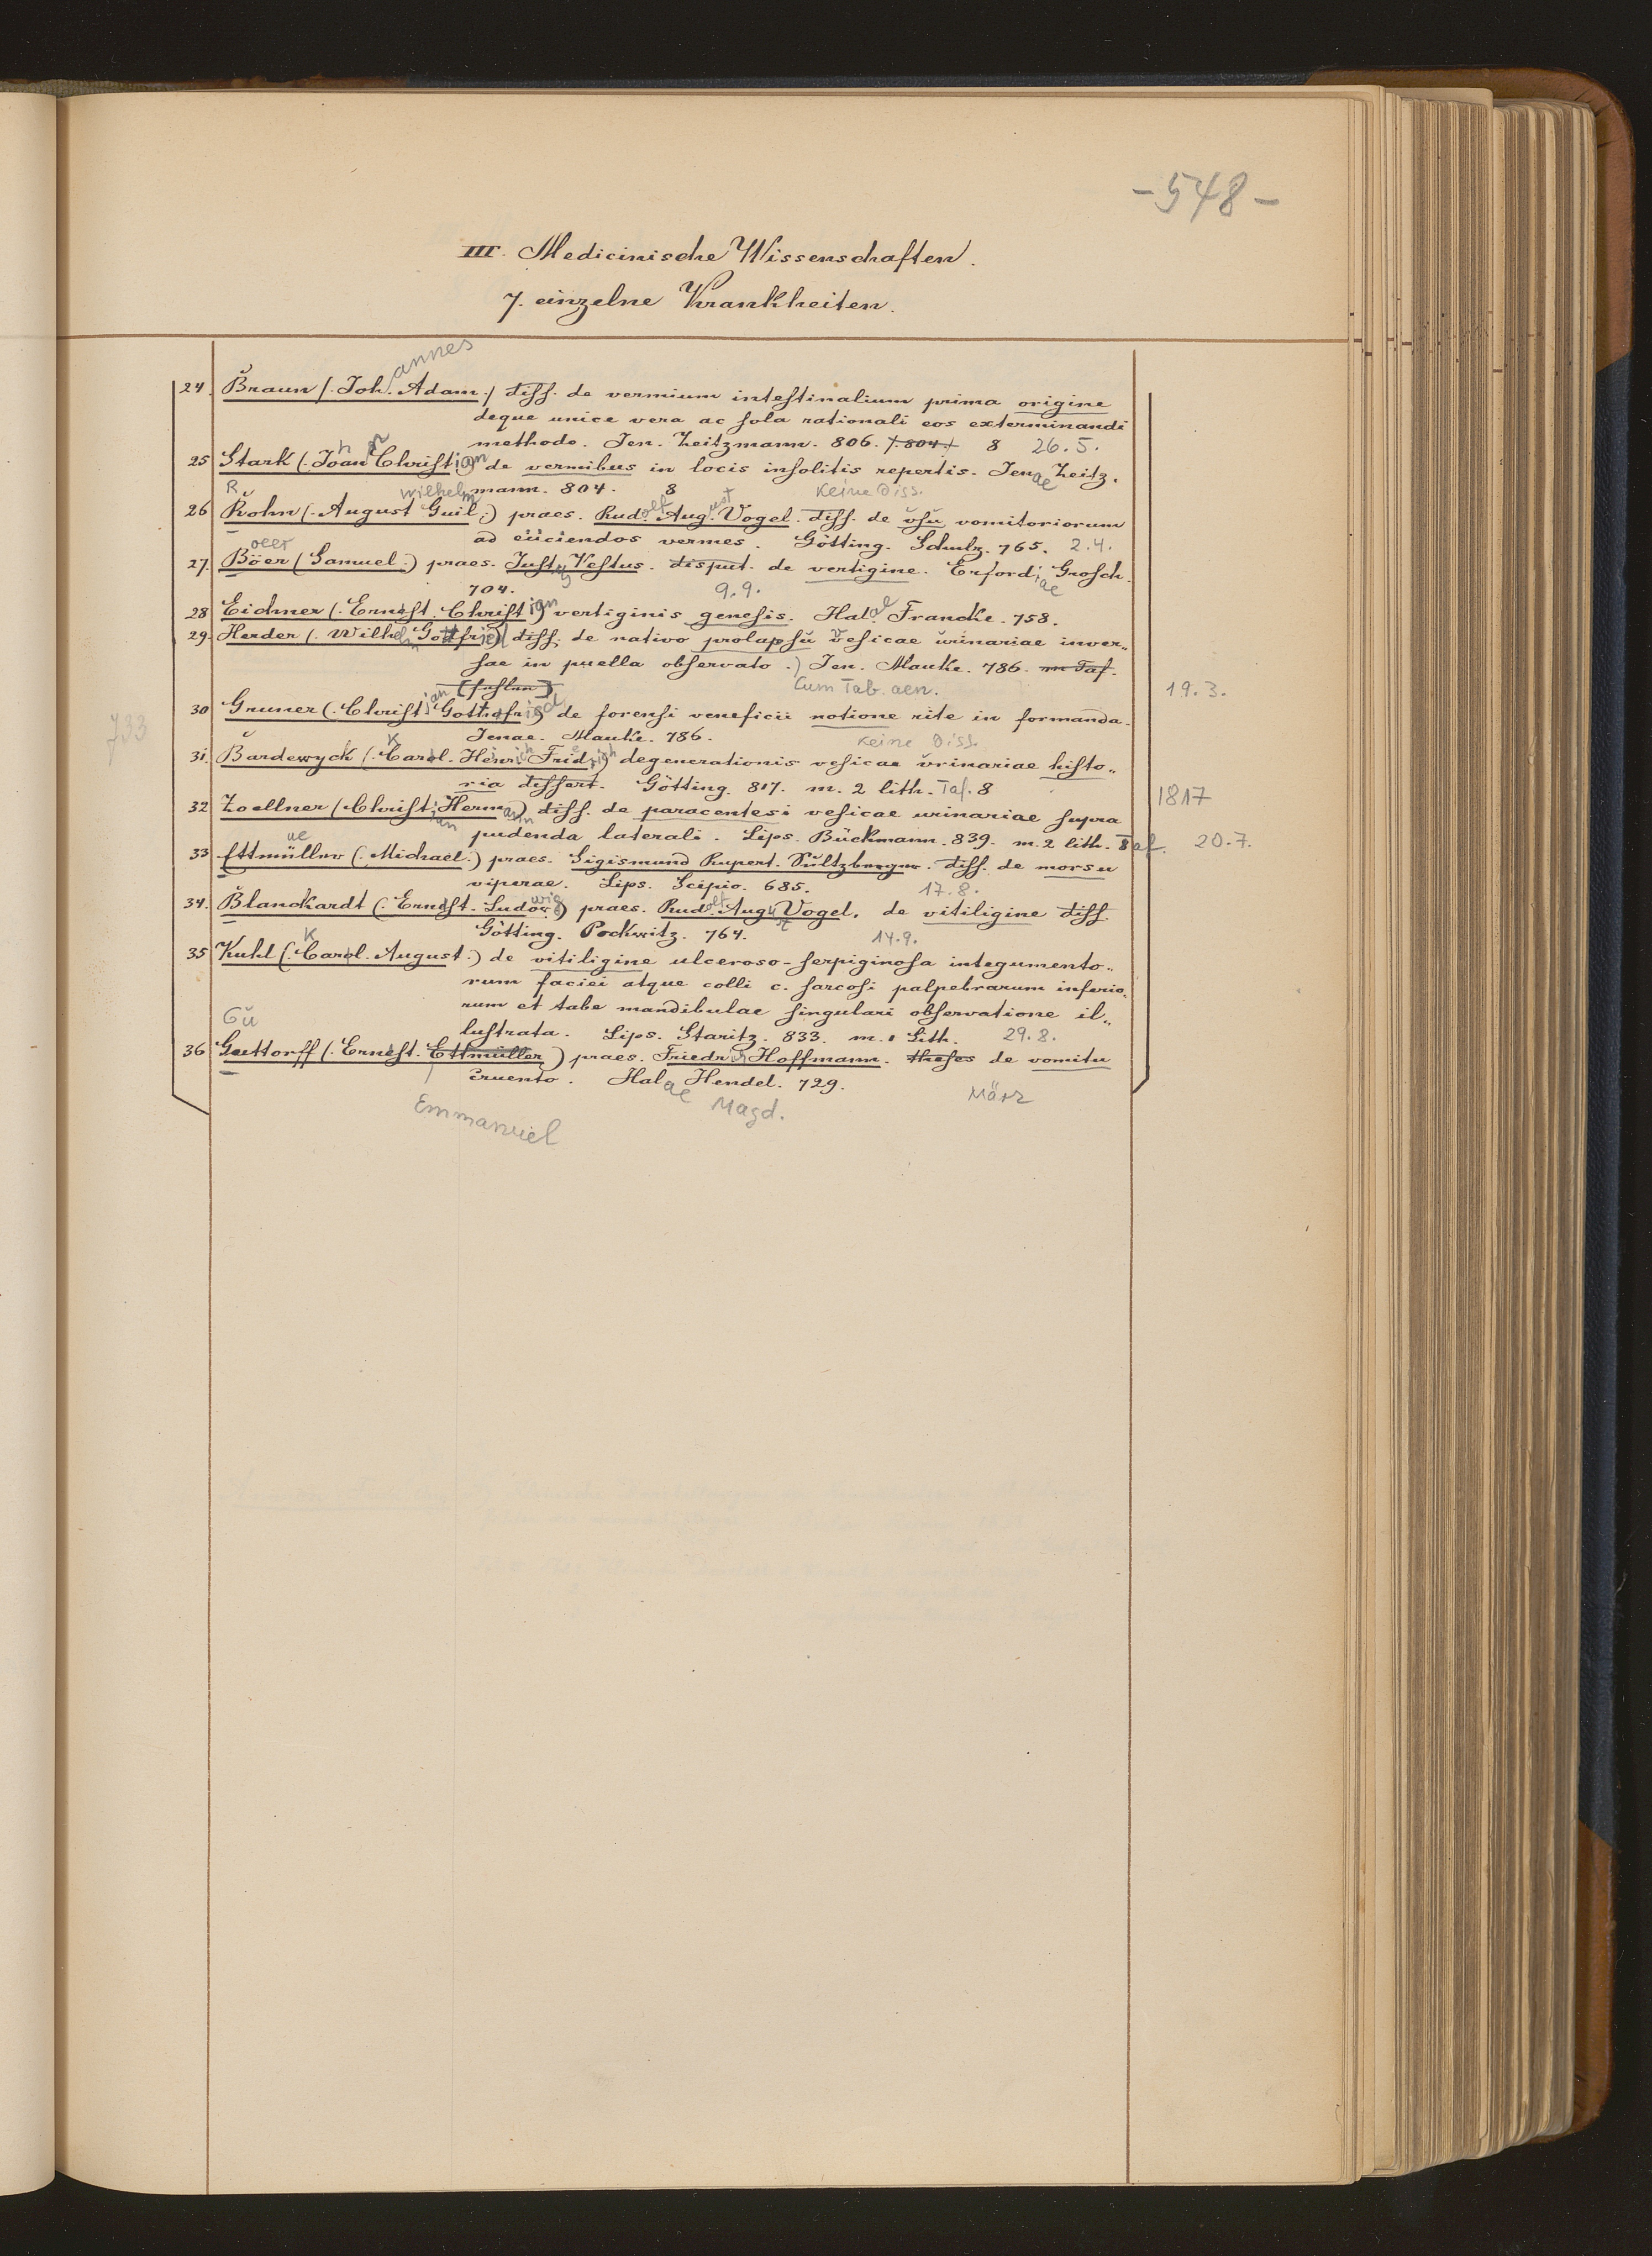 -548-
III. Medicinische Wissenschaften.
7. einzelne Krankheiten.
annes
24. Braun (. Joh. Adam.) diss. de vermium intestinalium prima origine
deque unice vera ac sola rationali eos exterminandi
methodo. Jen. Zeitzmann. 806. (. 804.) 8 26.5.
25 Stark (. Joan Christian de vermibus in locis insolitis repertis. Jenae Zeitz.
mann. 804. 8 Keine Diss.
R Wilhelm
26 Rohn (. August Guil.) praes. Rudolf August Vogel. diss. de usu vomitoriorum
ad eiiciendos vermes. Götting. Schulz. 765. 2.4.
oeer
27. Böer (Samuel.) praes. Justus Vestus. disput. de vertigine. Erfordiae Grosch.
704. 9.9.
28 Eichner (. Ernst. Christian vertiginis genesis. Halae Francke. 758.
29. Herder (. Wilhelm Gottfried) diss. de nativo prolapsu vesicae urinariae inver„
sae in puella observato.) Jen. Mauke. 786. m Taf.
[fehlen] Cum Tab. aen. 19.3.
30 Gruner (. Christian Gottfried) de forensi veneficii notione rite in formanda.
733
Jenae. Mauke. 786. Keine Diss.
K
31. Bardewyck (. Carol. Heinrich Friedrich) degenerationis vesicae urinariae histo„
ria dissert. Götting. 817. m. 2 lith. Taf. 8 1817
32 Zoellner (Christian Hermann) diss. de paracentesi vesicae urinariae supra
pudenda laterali. Lips. Bückmann. 839. m. 2 lith. Taf. 20.7.
ue
33 Ettmüller (. Michael.) praes. Sigismund Rupert. Sultzberger. diss. de morsu
viperae. Lips. Scipio. 685. 17.8.
34. Blanckardt (. Ernst. Ludowig) praes. Rudolf August Vogel. de vitiligine diss.
Götting. Pockwitz. 764. 14.9.
K
35 Kuhl (. Carol. August.) de vitiligine ulceroso-serpiginosa integumento„
rum faciei atque colli c. sarcosi palpebrarum inferio„
rum et tabe mandibulae singulari observatione il„
lustrata. Lips. Staritz. 833. m. 1 Lith. 29.8.
Gü
36 Guttorff (. Ernst. Ettmüller) praes. Friedrich Hoffmann. theses de vomitu
cruento. Halae Hendel. 729.
Emmanuel Magd. März